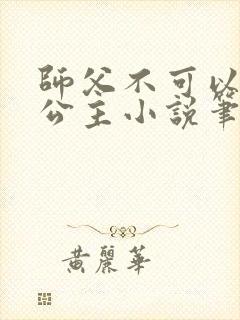 師父不可以
公主小說筆
黃麗華